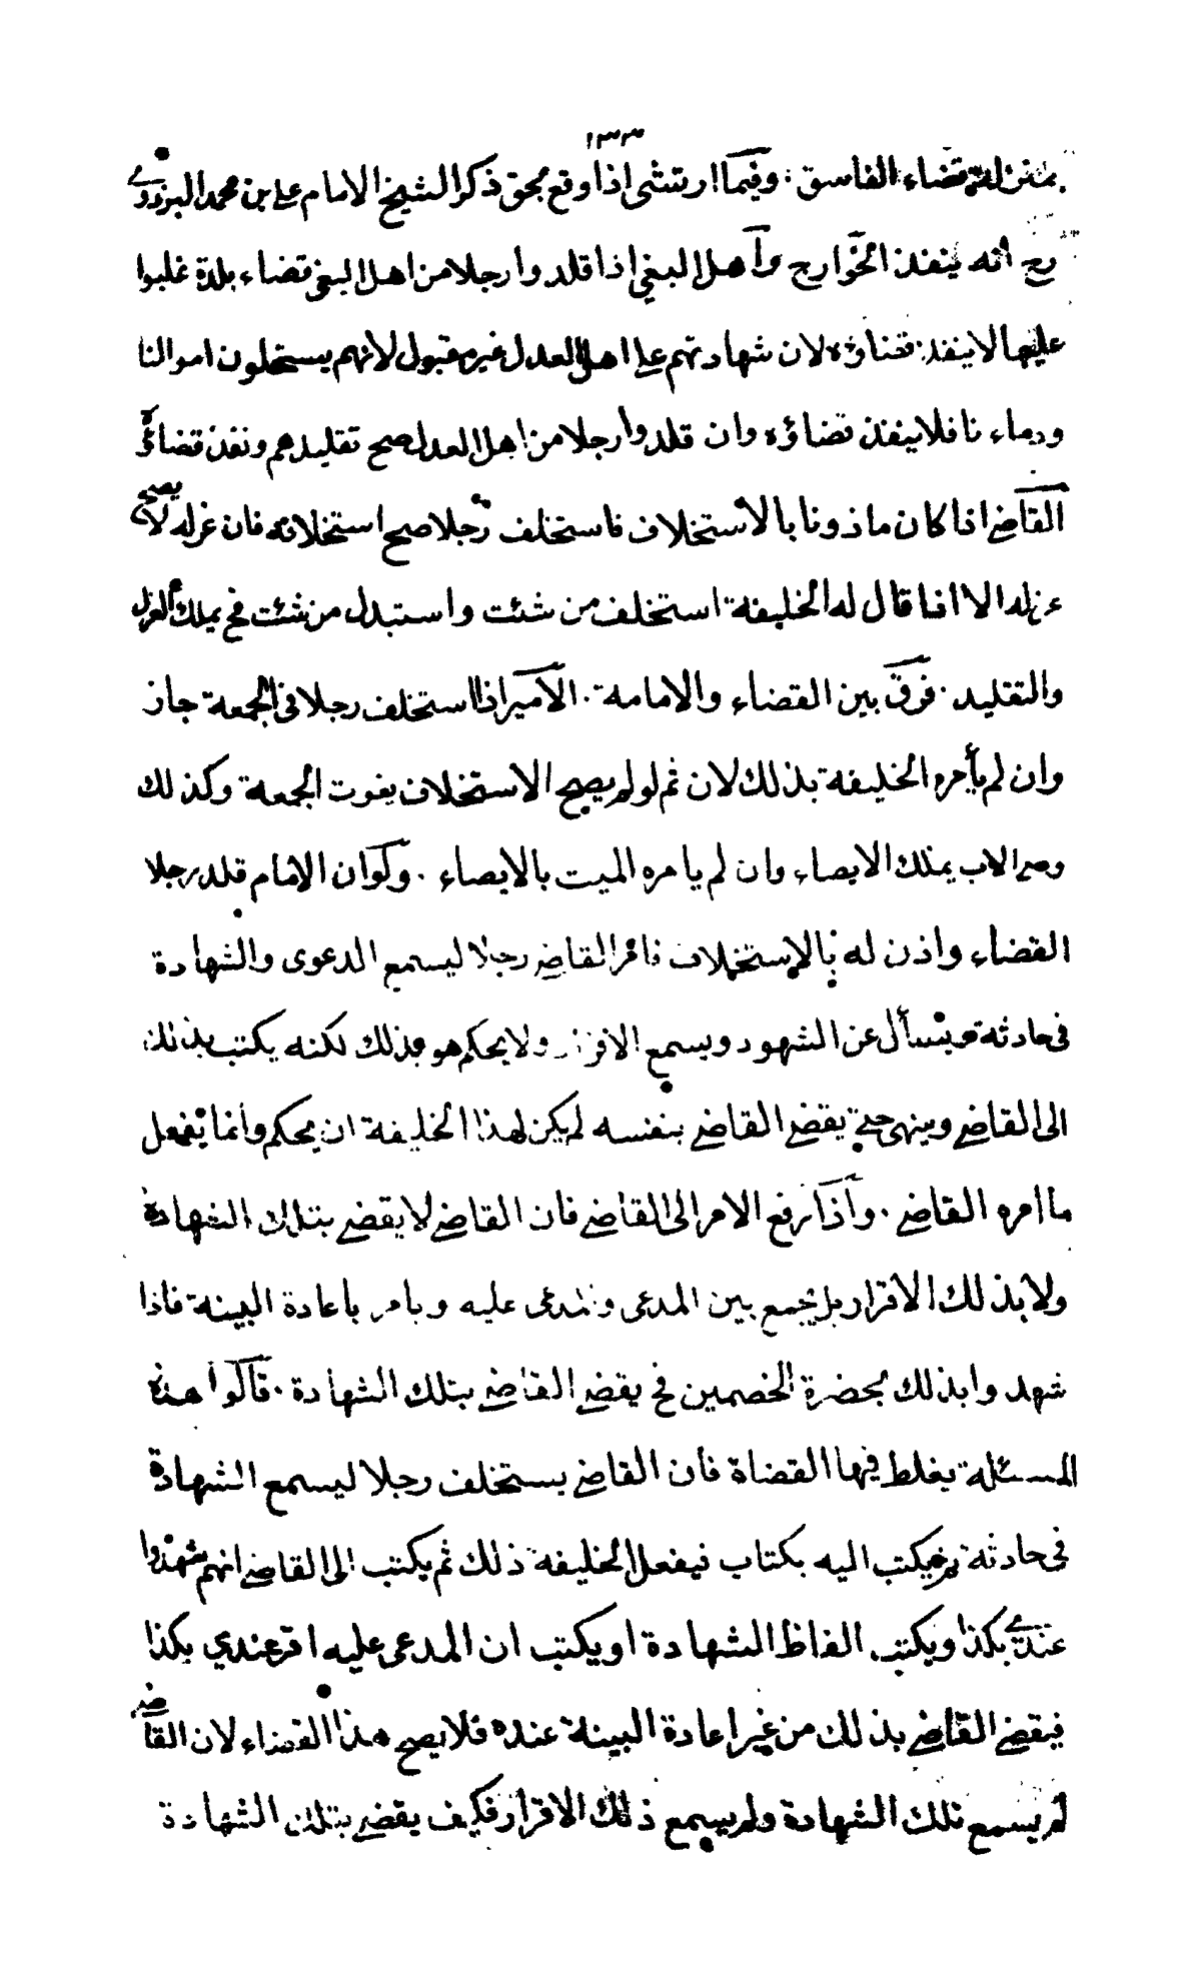 ١٣٣
بمنزلة قضاء الفاسق . وفيما ارتشى اذا وقع بحق ذكر الشيخ الامام على بن محمد البزدوى
رح انه ينفذ الخوارج واهل البغي اذا قلدوا رجلا من اهل البغى قضاء بلدة غلبوا
عليها لا ينفذ قضاؤه لان شهادتهم على اهل العدل غير مقبول لانهم يستحلون اموالنا
ودماء نا فلا ينفذ قضاؤه وان قلدوا رجلا من اهل العدل صح تقليدهم ونفذ قضاؤه
القاضى اذا كان ماذونا بالاستخلاف فاستخلف رجلا صح استخلافه فان عزله لا يصح
عزله الا اذا قال له الخليفة استخلف من شئت واستبدل من شئت فح يملك العزل
والتقليد . فرق بين القضاء والامامة . الامير اذا استخلف رجلا فى الجمعة جاز
وان لم يأمره الخليفة بذلك لان ثم لو لم يصح الاستخلاف يفوت الجمعة وكذلك
وصى الاب يملك الايصاء وان لم يامره الميت بالايصاء . ولو ان الامام قلد رجلا
القضاء واذن له بالاستخلاف فامر القاضى رجلا ليسمع الدعوى والشهادة
فى حادثة ويسأل عن الشهود ويسمع الاقرار ولا يحكم هو بذلك لكنه يكتب بذلك
الى القاضى وينهى حتى يقضى القاضى بنفسه لم يكن لهذا الخليفة ان يحكم وانما يفعل
ما امره القاضى . واذا رفع الامر الى القاضى فان القاضى لا يقضى بتلك الشهادة
ولا بذلك الاقرار بل يجمع بين المدعى والمدعى عليه ويامر باعادة البينة فاذا
شهدوا بذلك بحضرة الخصمين فح يقضى القاضى بتلك الشهادة . قالوا هذه
المسئلة يغلط فيها القضاة فان القاضى يستخلف رجلا ليسمع الشهادة
فى حادثة ثم يكتب اليه بكتاب فيفعل الخليفة ذلك ثم يكتب الى القاضى انهم شهدوا
عندى بكذا ويكتب الفاظ الشهادة او يكتب ان المدعى عليه اقر عندي بكذا
فيقضى القاضى بذلك من غير اعادة البينة عنده فلا يصح هذا القضاء لان القاضى
لم يسمع تلك الشهادة ولم يسمع ذلك الاقرار فكيف يقضى بتلك الشهادة